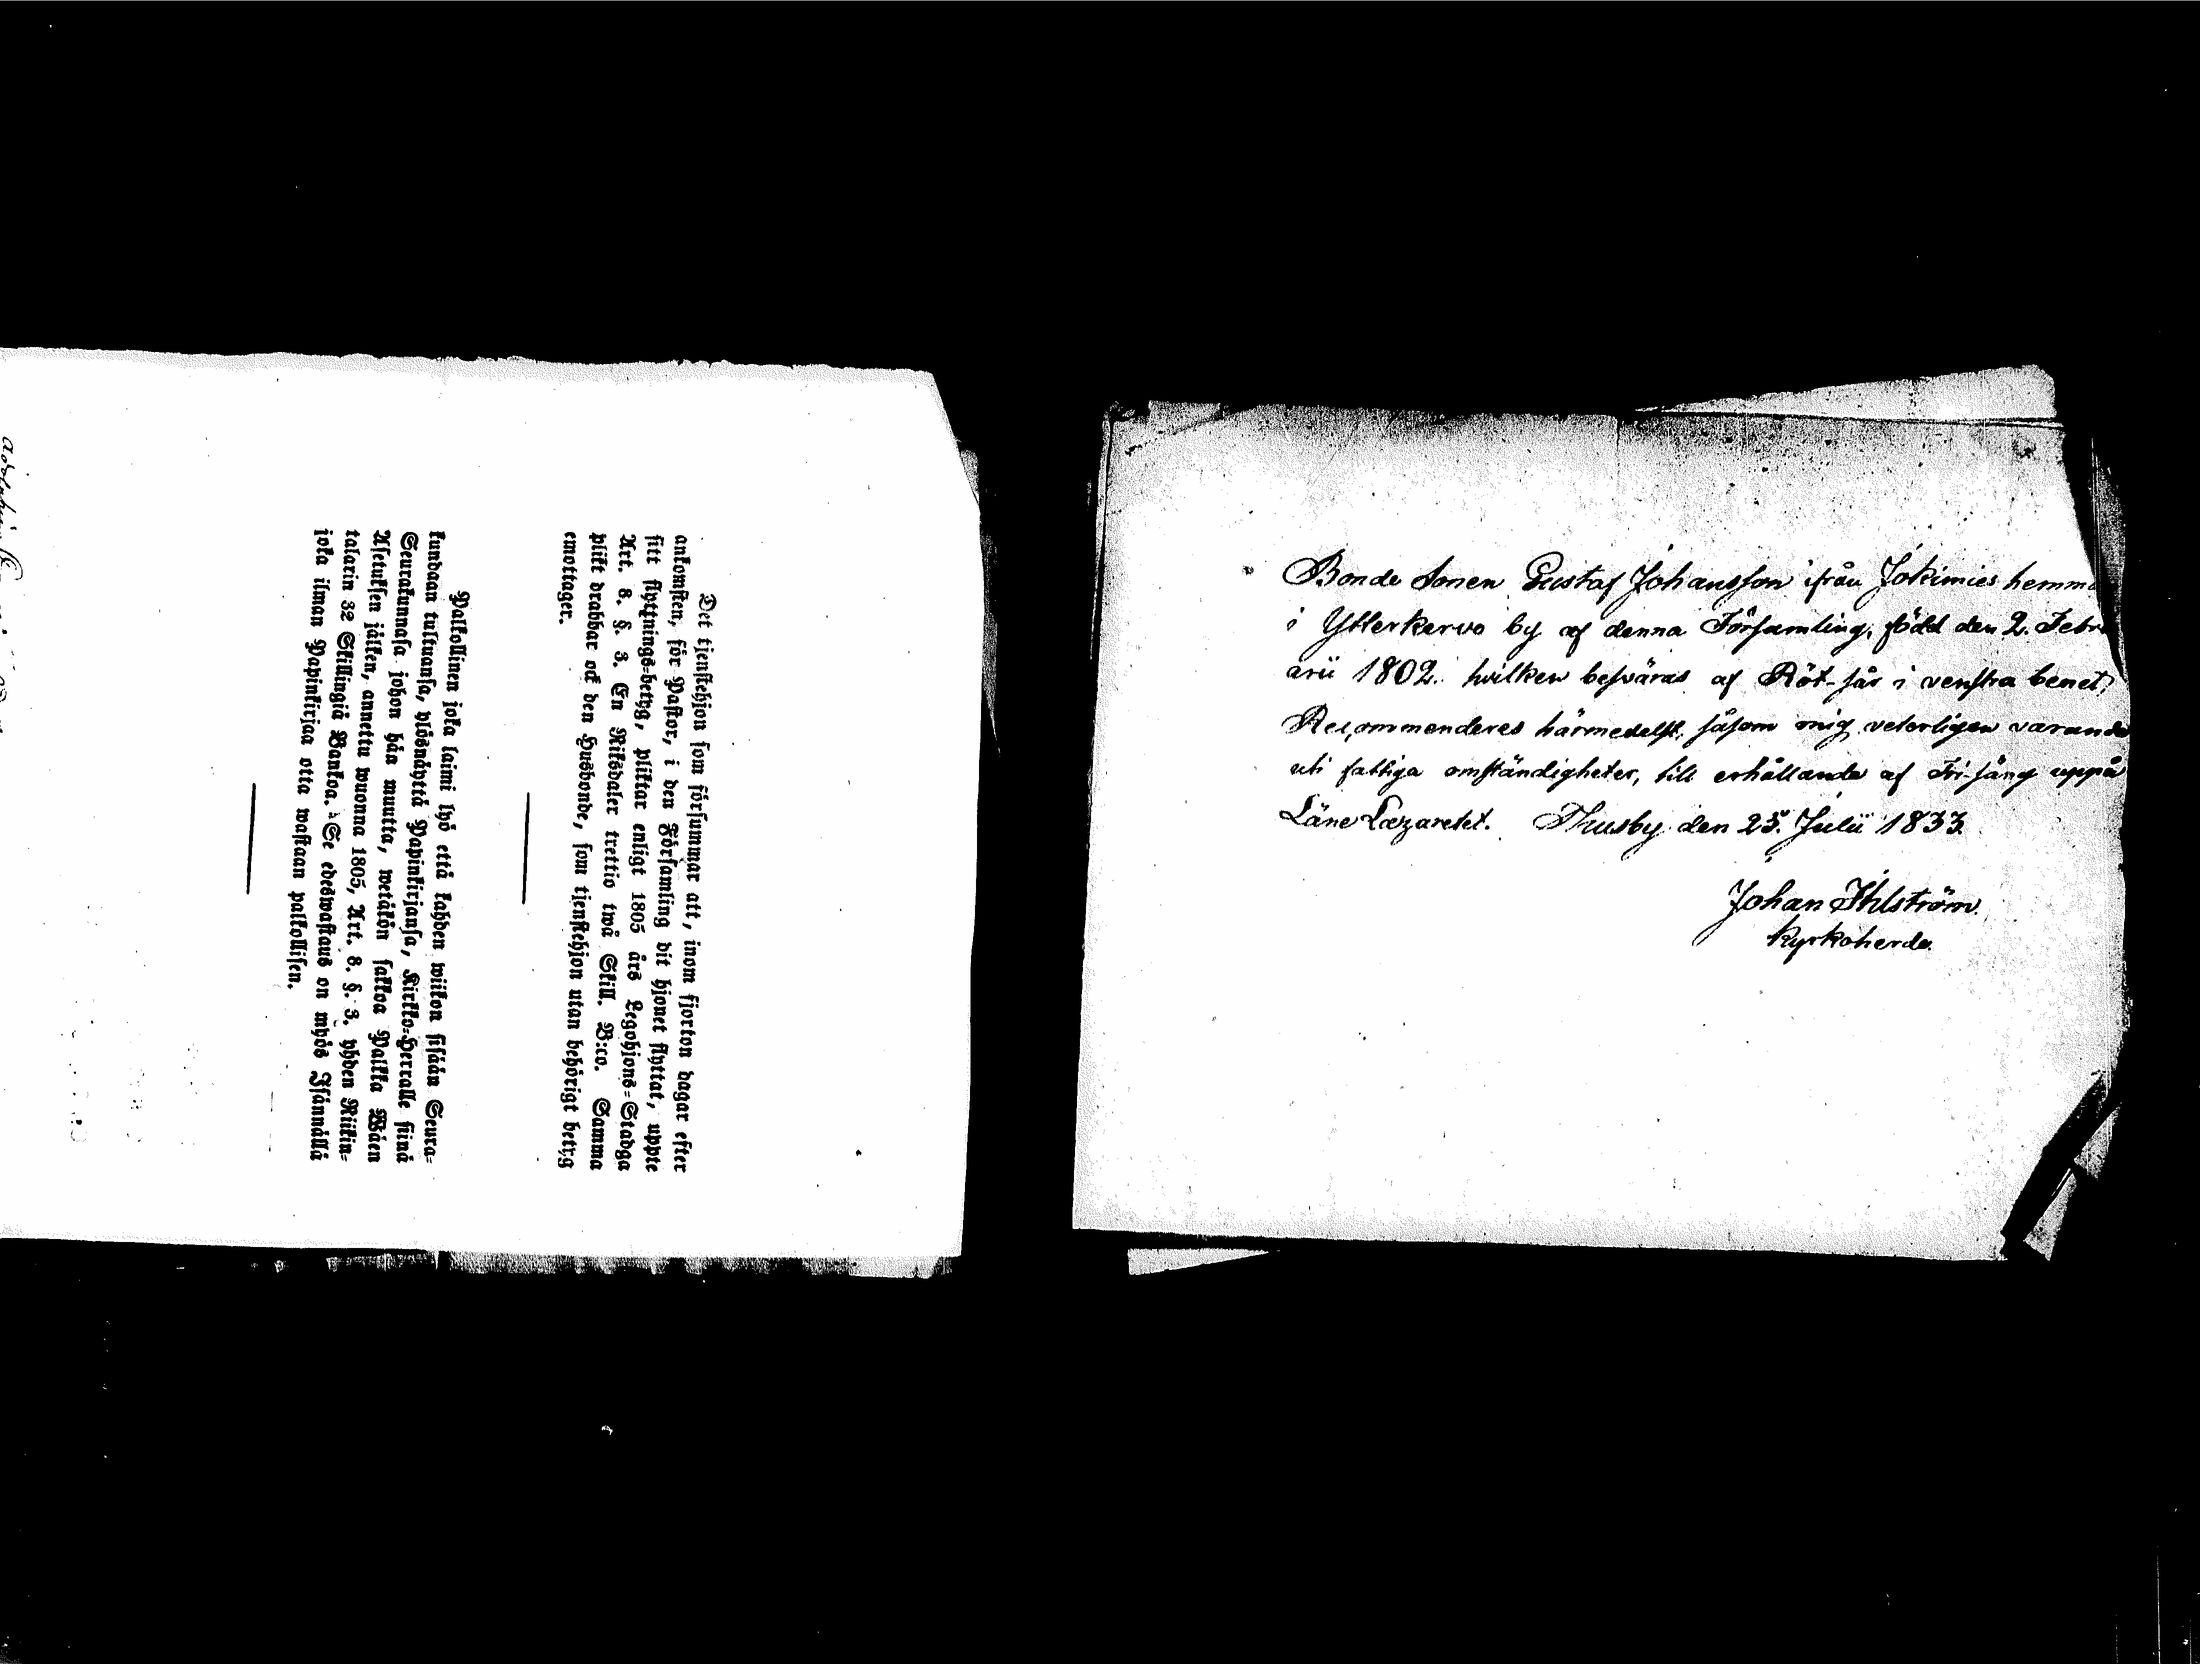 Det tjenstehjon som försummar att, inom fjorton dagar efter
ankomsten, för Pastor, i den Församling dit hjonet flyttat, uppte
sitt flyttnings-betyg, pliktar enligt 1805 års Legohjons-Stadga
Art. 8. §. 3. En Riksdaler trettio twå Skill. B:co. Samma
plikt drabbar ock den Husbonde, som tjenstehjon utan behörigt betyg
emottager.
Palkollinen joka laimi lyö että kahden wiikon sisään Seura-
kundaan tultuansa, ylösnäyttä Papinkirjansa, Kirkko-Herralle siinä
Seurakunnasa johon hän muutta, wetäkön sakkoa Palkka Wäen
Asetuksen jälken, annettu wuonna 1805, Art. 8. §. 3. yhden Riikin-
talarin 32 Skillingiä Bankoa. Se edeswastaus on myös Isännällä
joka ilman Papinkirjaa otta wastaan palkollisen.
Bonde Sonen Gustaf Johansson ifrån Jokimies hemma
i Ytterkervo by af denna Församling, född den 2. Febru
arii 1802. hvilken besväras af Röt-sår i venstra benet,
Recommenderes härmedelst, såsom mig veterligen varande
uti fattiga omständigheter, till erhållande af Fri-säng uppå
Läne Lazaretet. Thusby den 25. Julii 1833.
Johan Ihlström.
Kyrkoherde.